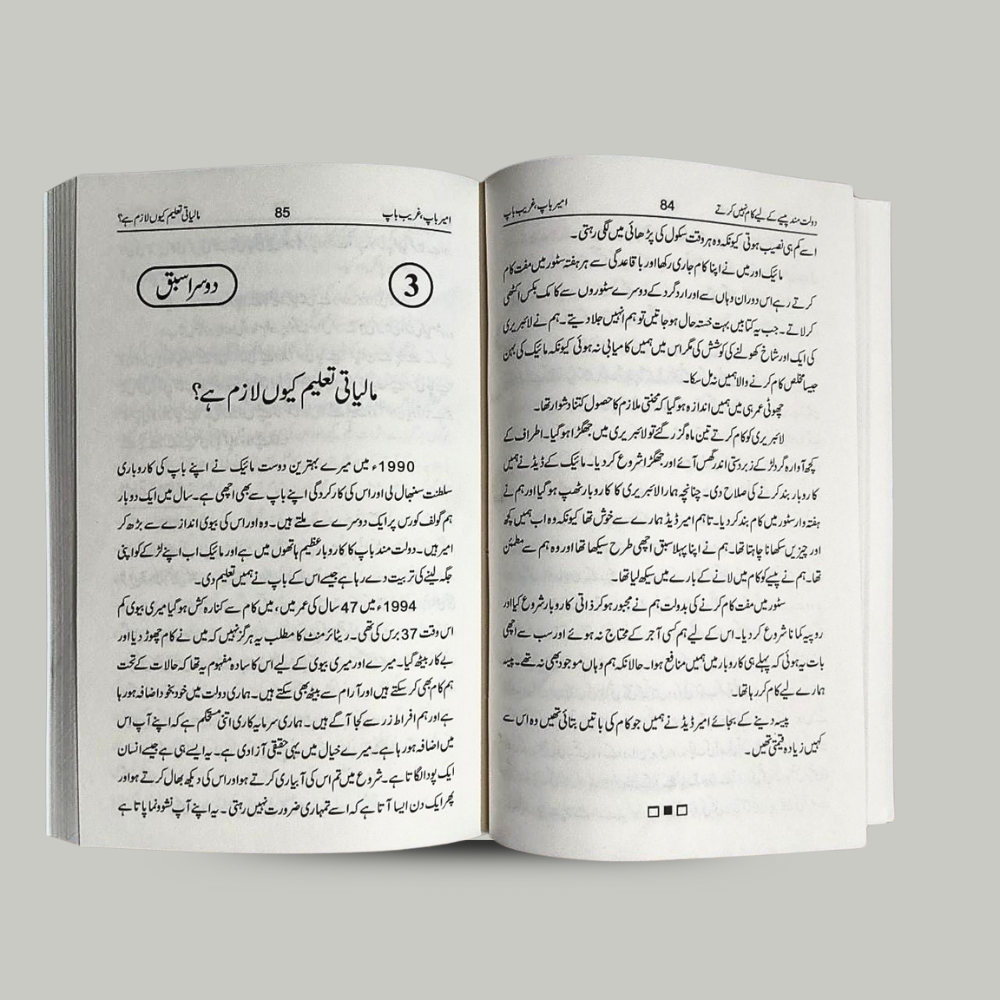 دولت مند پیسے کے لیے کام نہیں کرتے 84 امیر باپ، غریب باپ
اسے کم ہی نصیب ہوتی کیونکہ وہ ہر وقت سکول کی پڑھائی میں لگی رہتی۔
مائیک اور میں نے اپنا کام جاری رکھا اور باقاعدگی سے ہر ہفتہ سٹور میں مفت کام
کرتے رہے اس دوران وہاں سے اور اردگرد کے دوسرے سٹوروں سے کامک بکس اکٹھی
کر لاتے۔ جب یہ کتابیں بہت خستہ حال ہو جاتیں تو ہم انہیں جلا دیتے۔ ہم نے لائبریری
کی ایک اور شاخ کھولنے کی کوشش کی مگر اس میں ہمیں کامیابی نہ ہوئی کیونکہ مائیک کی بہن
جیسا مخلص کام کرنے والا ہمیں نہ مل سکا۔
چھوٹی عمر ہی میں ہمیں اندازہ ہو گیا کہ محنتی ملازم کا حصول کتنا دشوار تھا۔
لائبریری کو کام کرتے تین ماہ گزر گئے تو لائبریری میں جھگڑا ہو گیا۔ اطراف کے
کچھ آوارہ گرد لڑکے زبردستی اندر گھس آئے اور جھگڑا شروع کر دیا۔ مائیک کے ڈیڈ نے ہمیں
کاروبار بند کرنے کی صلاح دی۔ چنانچہ ہمارا لائبریری کا کاروبار ٹھپ ہو گیا اور ہم نے
ہفتہ وار سٹور میں کام بند کر دیا۔ تاہم امیر ڈیڈ ہمارے سے خوش تھا کیونکہ وہ اب ہمیں کچھ
اور چیزیں سکھانا چاہتا تھا۔ ہم نے اپنا پہلا سبق اچھی طرح سیکھا تھا اور وہ ہم سے مطمئن
تھا۔ ہم نے پیسے کو کام میں لانے کے بارے میں سیکھ لیا تھا۔
سٹور میں مفت کام کرنے کی بدولت ہم نے مجبور ہو کر ذاتی کاروبار شروع کیا اور
روپیہ کمانا شروع کر دیا۔ اس کے لیے ہم کسی آجر کے محتاج نہ ہوئے اور سب سے اچھی
بات یہ ہوئی کہ پہلے ہی کاروبار میں ہمیں منافع ہوا۔ حالانکہ ہم وہاں موجود بھی نہ تھے۔ پیسہ
ہمارے لیے کام کر رہا تھا۔
پیسہ دینے کے بجائے امیر ڈیڈ نے ہمیں جو کام کی باتیں بتائی تھیں وہ اس سے
کہیں زیادہ قیمتی تھیں۔
امیر باپ، غریب باپ 85 مالیاتی تعلیم کیوں لازم ہے؟
3 دوسرا سبق
مالیاتی تعلیم کیوں لازم ہے؟
1990ء میں میرے بہترین دوست مائیک نے اپنے باپ کی کاروباری
سلطنت سنبھال لی اور اس کی کارکردگی اپنے باپ سے بھی اچھی ہے۔ سال میں ایک دو بار
ہم گولف کورس پر ایک دوسرے سے ملتے ہیں۔ وہ اور اس کی بیوی اندازے سے بڑھ کر
امیر ہیں۔ دولت مند باپ کا کاروبار عظیم ہاتھوں میں ہے اور مائیک اب اپنے لڑکے کو اپنی
جگہ لینے کی تربیت دے رہا ہے جیسے اس کے باپ نے ہمیں تعلیم دی۔
1994ء میں 47 سال کی عمر میں، میں کام سے کنارہ کش ہو گیا میری بیوی کم
اس وقت 37 برس کی تھی۔ ریٹائرمنٹ کا مطلب یہ ہرگز نہیں کہ میں نے کام چھوڑ دیا اور
بے کار بیٹھ گیا۔ میرے اور میری بیوی کے لیے اس کا سادہ مفہوم یہ تھا کہ حالات کے تحت
ہم کام بھی کر سکتے ہیں اور آرام سے بیٹھ بھی سکتے ہیں۔ ہماری دولت میں خود بخود اضافہ ہو رہا
ہے اور ہم افراط زر سے کہیں آگے ہیں۔ ہماری سرمایہ کاری اتنی مستحکم ہے کہ اپنے آپ اس
میں اضافہ ہو رہا ہے۔ میرے خیال میں یہی حقیقی آزادی ہے۔ یہ ایسے ہی ہے جیسے انسان
ایک پودا لگاتا ہے۔ شروع میں تم اس کی آبیاری کرتے ہو اور اس کی دیکھ بھال کرتے ہو اور
پھر ایک دن ایسا آتا ہے کہ اسے تمہاری ضرورت نہیں رہتی۔ یہ اپنے آپ نشوونما پاتا ہے